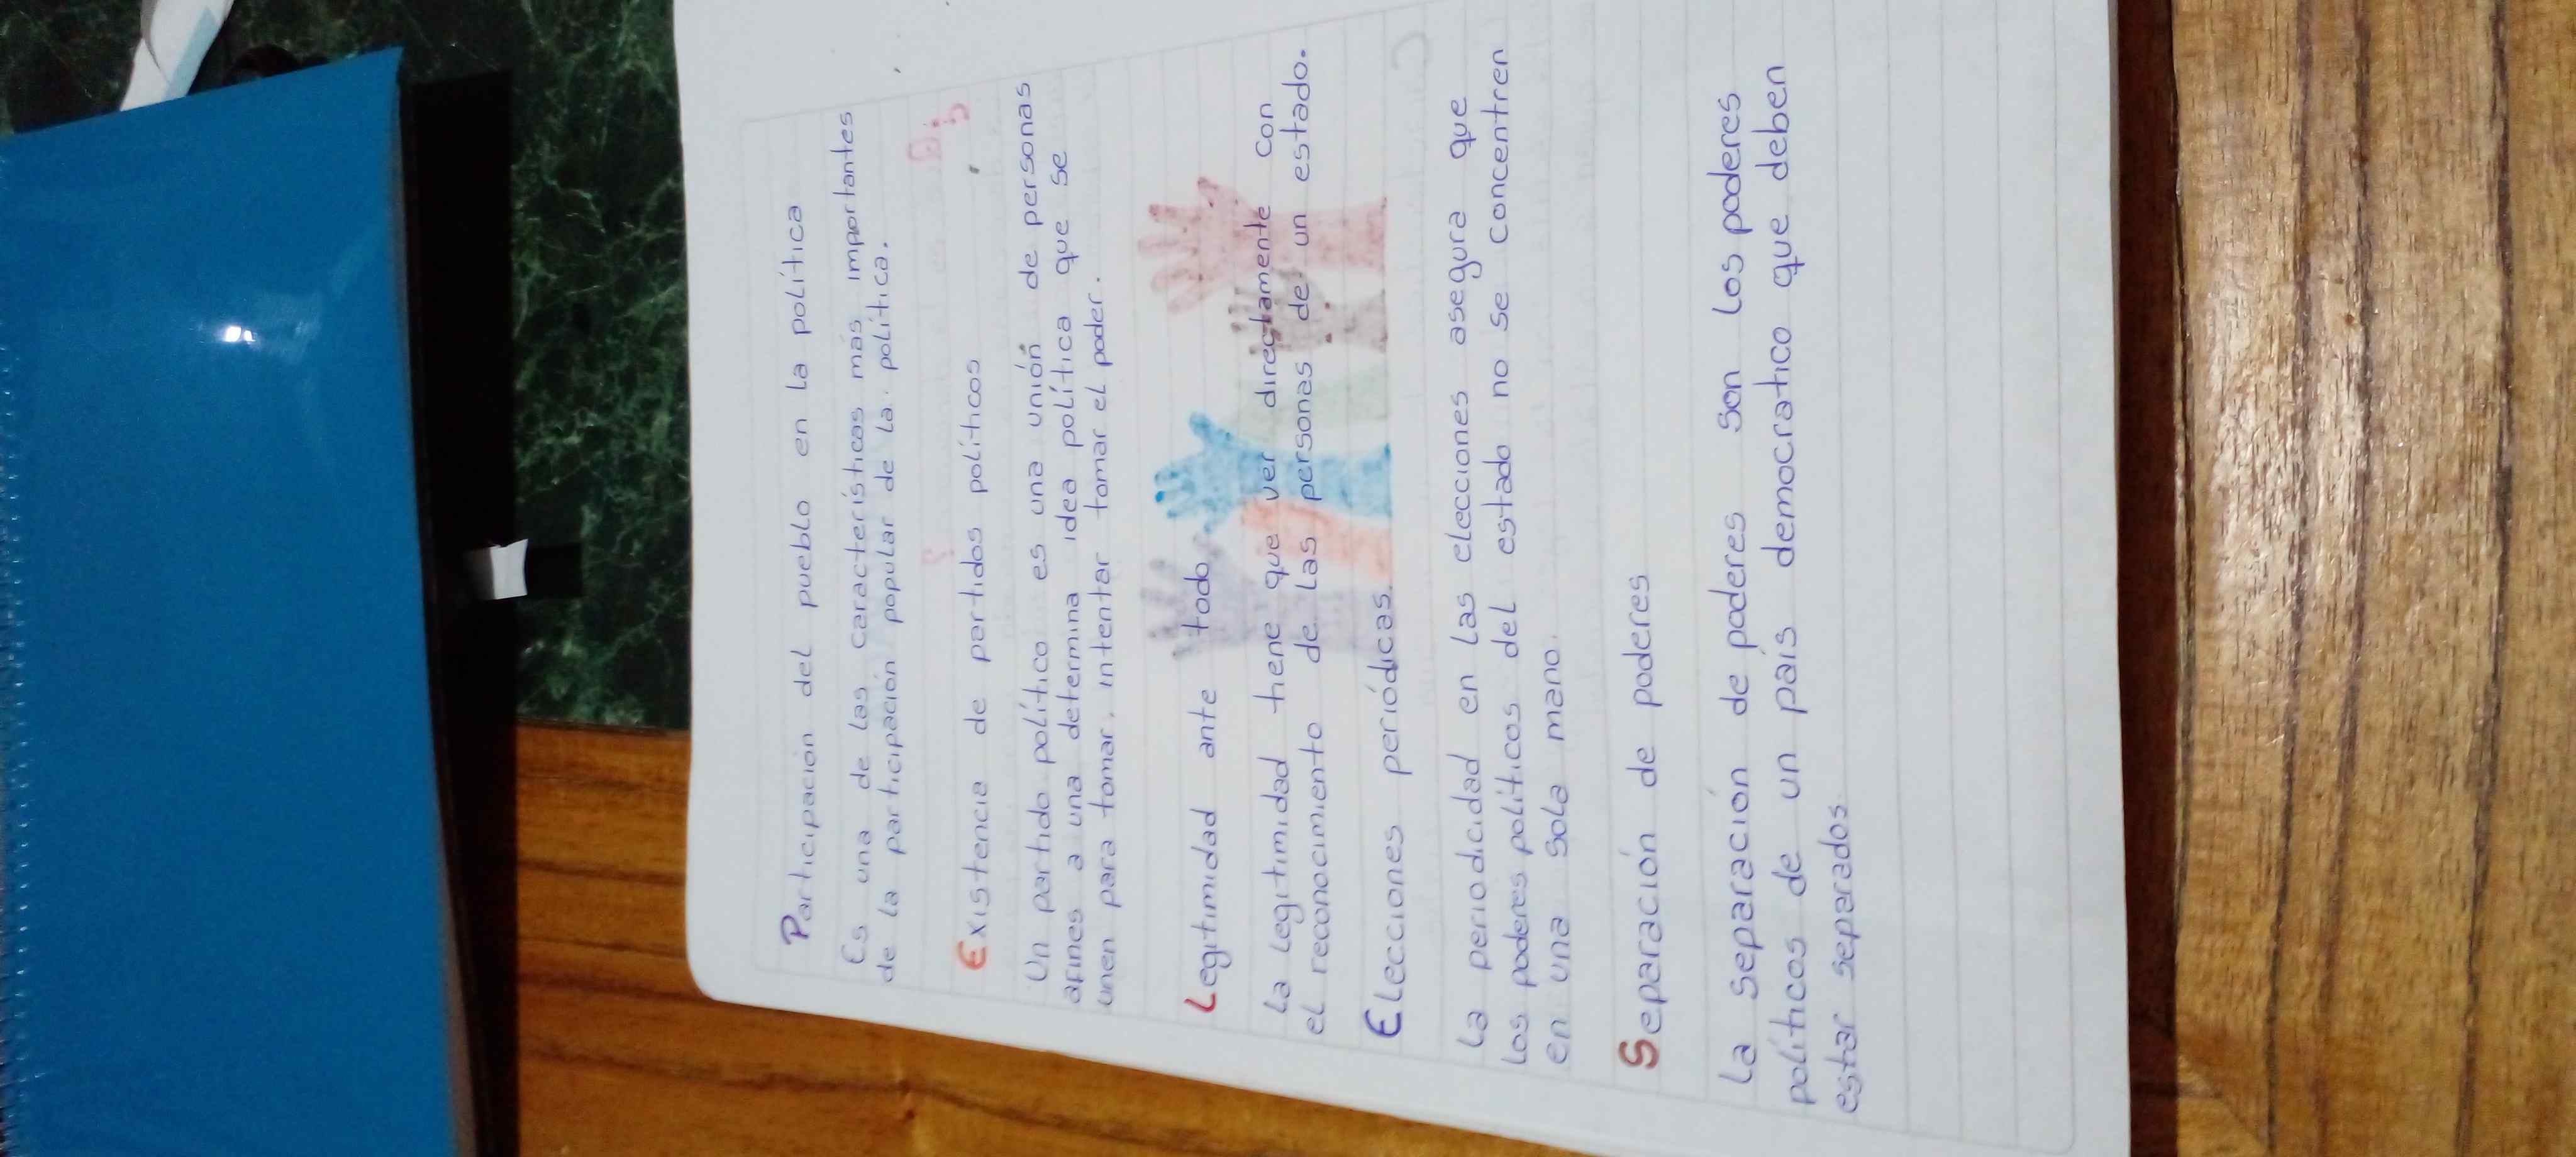 Participación del pueblo en la política
Es una de las características más importantes
de la participación popular de la política.
Existencia de partidos políticos
Un partido político es una unión de personas
afines a una determina idea política que se
unen para tomar, intentar tomar el poder.
Legitimidad ante todo
La legitimidad tiene que ver directamente con
el reconocimiento de las personas de un estado.
Elecciones periódicas.
La periodicidad en las elecciones asegura que
los poderes políticos del estado no se concentren
en una sola mano.
Separación de poderes
La separación de poderes son los poderes
políticos de un país democratico que deben
estar separados